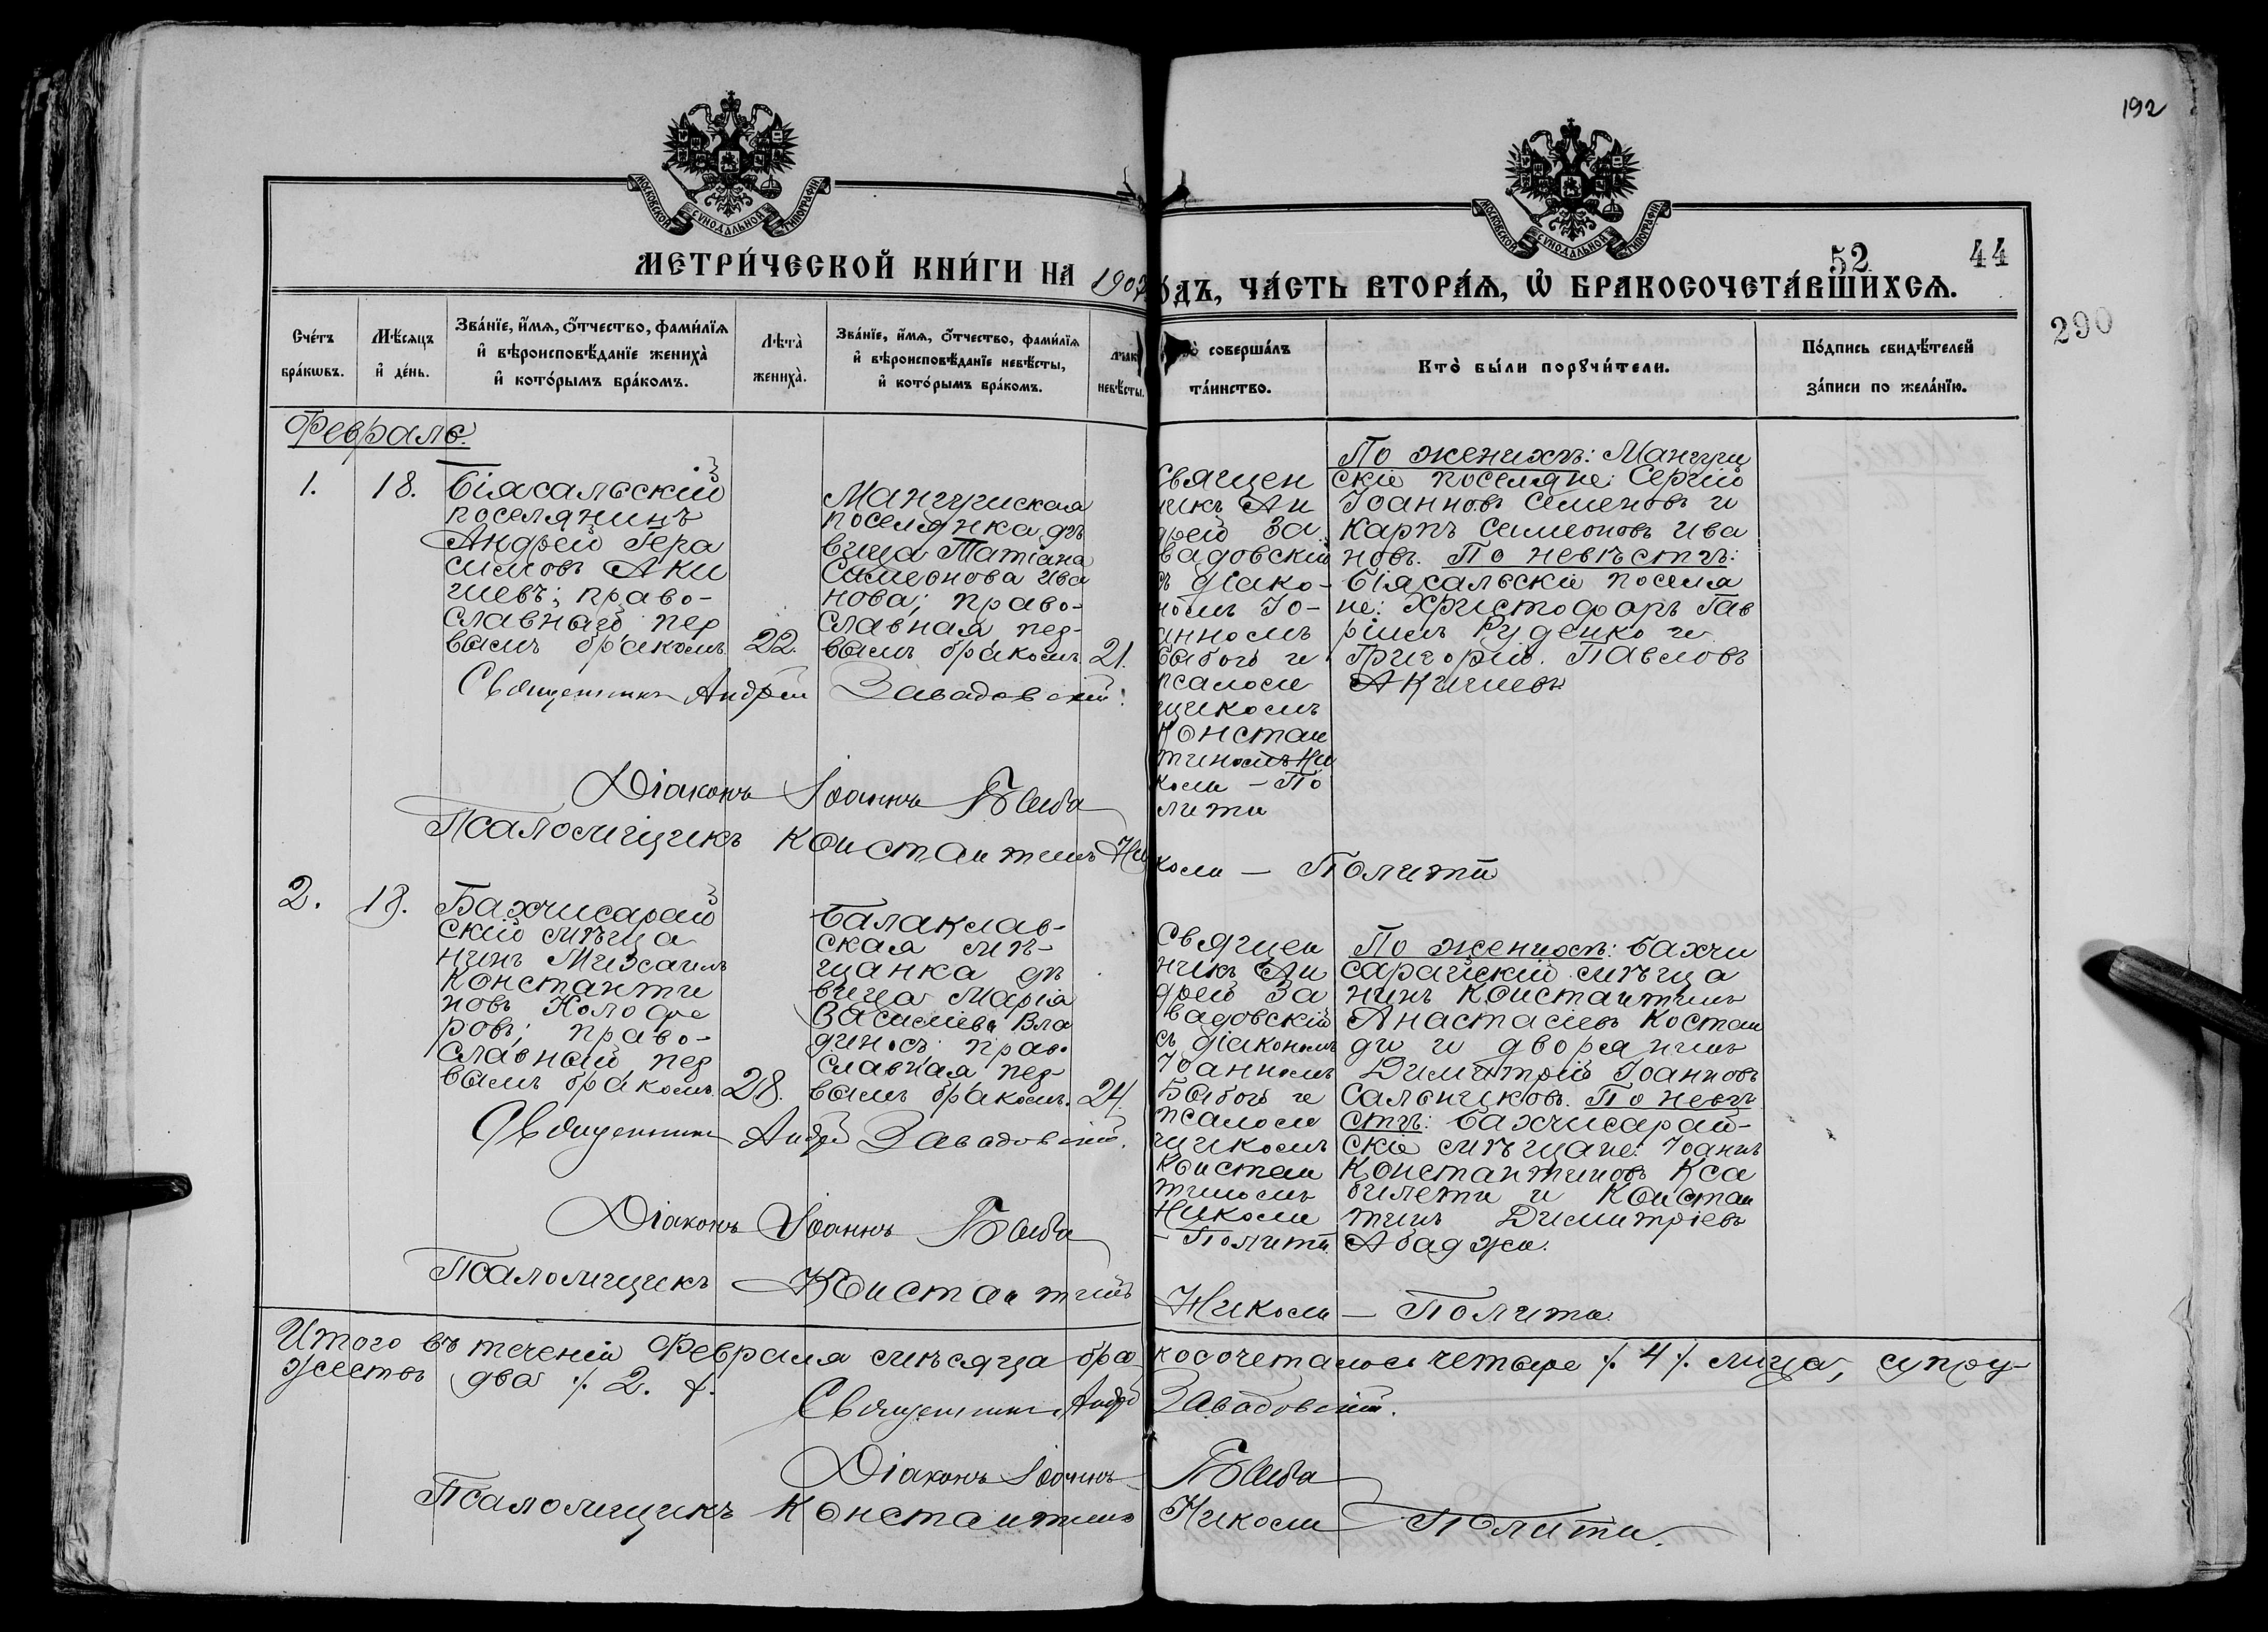 192
МОСКОВСКОЙ СУНОДАЛЬНОЙ ТИПОГРАФІИ
МОСКОВСКОЙ СУНОДАЛЬНОЙ ТИПОГРАФІИ
52 44
МЕТРИ́ЧЕСКОЙ КНИ́ГИ НА 1902
О́ДЪ, ЧА́СТЬ ВТОРА́Ѧ, Ѡ҆ БРАКОСОЧЕТА́ВШИХСѦ.
290
Сче́тъ
бра́кωвъ.
Мѣ́сѧцъ
и҆ де́нь.
Зва́нїе, и҆́мѧ, ѻ҆́тчество, фами́лїѧ
и҆ вѣроисповѣ́данїе жениха̀
и҆ кото́рымъ бра́комъ.
Лѣта̀
жениха̀.
Зва́нїе, и҆́мѧ, ѻ҆́тчество, фами́лїѧ
и҆ вѣроисповѣ́данїе невѣ́сты,
и҆ кото́рымъ бра́комъ.
невѣ́сты.
соверша́лъ
та́инство.
Кто̀ бы́ли порꙋчи́тели.
По́дпись свидѣ́телей
за́писи по жела́нїю.
Февраль.
1.
18.
Біясальскій
поселянинъ
Андрей Гера
симовъ Аки
шевъ; право-
славный, пер
вымъ бракомъ.
22.
Мангушская
поселянка дѣ
вица Татіана
Симеонова Ива
нова; право-
славная, пер-
вымъ бракомъ.
21.
Священ
никъ Ан
дрей За
вадовскій
съ діако-
номъ Іо-
анномъ
Бабого и
псалом
щикомъ
Констан
тиномъ Ни
коли - По
лити
По женихѣ: Мангуш
скіе поселяне: Сергій
Іоанновъ Семеновъ и
Карпъ Симеоновъ Ива
новъ. По невѣстѣ:
Біясальскіе поселя
не: Христофоръ Гав
ріилъ Руденко и
Григорій Павловъ
Акишевъ
Священникъ Андрей Завадовскій.
Діаконъ Іоаннъ
Псаломщикъ Константинъ Ни
коли - Полити
2.
18.
Бахчисарай
скій мѣща
нинъ Михаилъ
Константи
новъ Холофе
ровъ; право-
славный, пер
вымъ бракомъ.
28.
Балаклав-
ская мѣ-
щанка дѣ
вица Марія
Василіева Вла
диносъ; право
славная, пер-
вымъ бракомъ.
24.
Священ
никъ Ан
дрей За
вадовскій
съ діакономъ
Іоанномъ
Бабого и
псалом
щикомъ
Констан
тиномъ
Николи
- Полити
По женихѣ: Бахчи
сарайскій мѣща
нинъ Константинъ
Анастасіевъ Костан
ди и дворянинъ
Димитрій Іоанновъ
Сальниковъ. По невѣ
стѣ: Бахчисарай-
скіе мѣщане: Іоаннъ
Константиновъ Кса
билети и Констан
тинъ Димитріевъ
Абаджи.
Священникъ Андрей Завадовскій.
Діаконъ Іоаннъ
Псаломщикъ Константинъ
Николи - Полити
Итого въ теченіи Февраля мѣсяца бра
косочеталось четыре ⁒ 4 ⁒ лица, супру-
жествъ два ⁒ 2. ⁒
Священникъ Андрей Завадовскій.
Діаконъ Іоаннъ
Псаломщикъ Константинъ Николи - Полити.